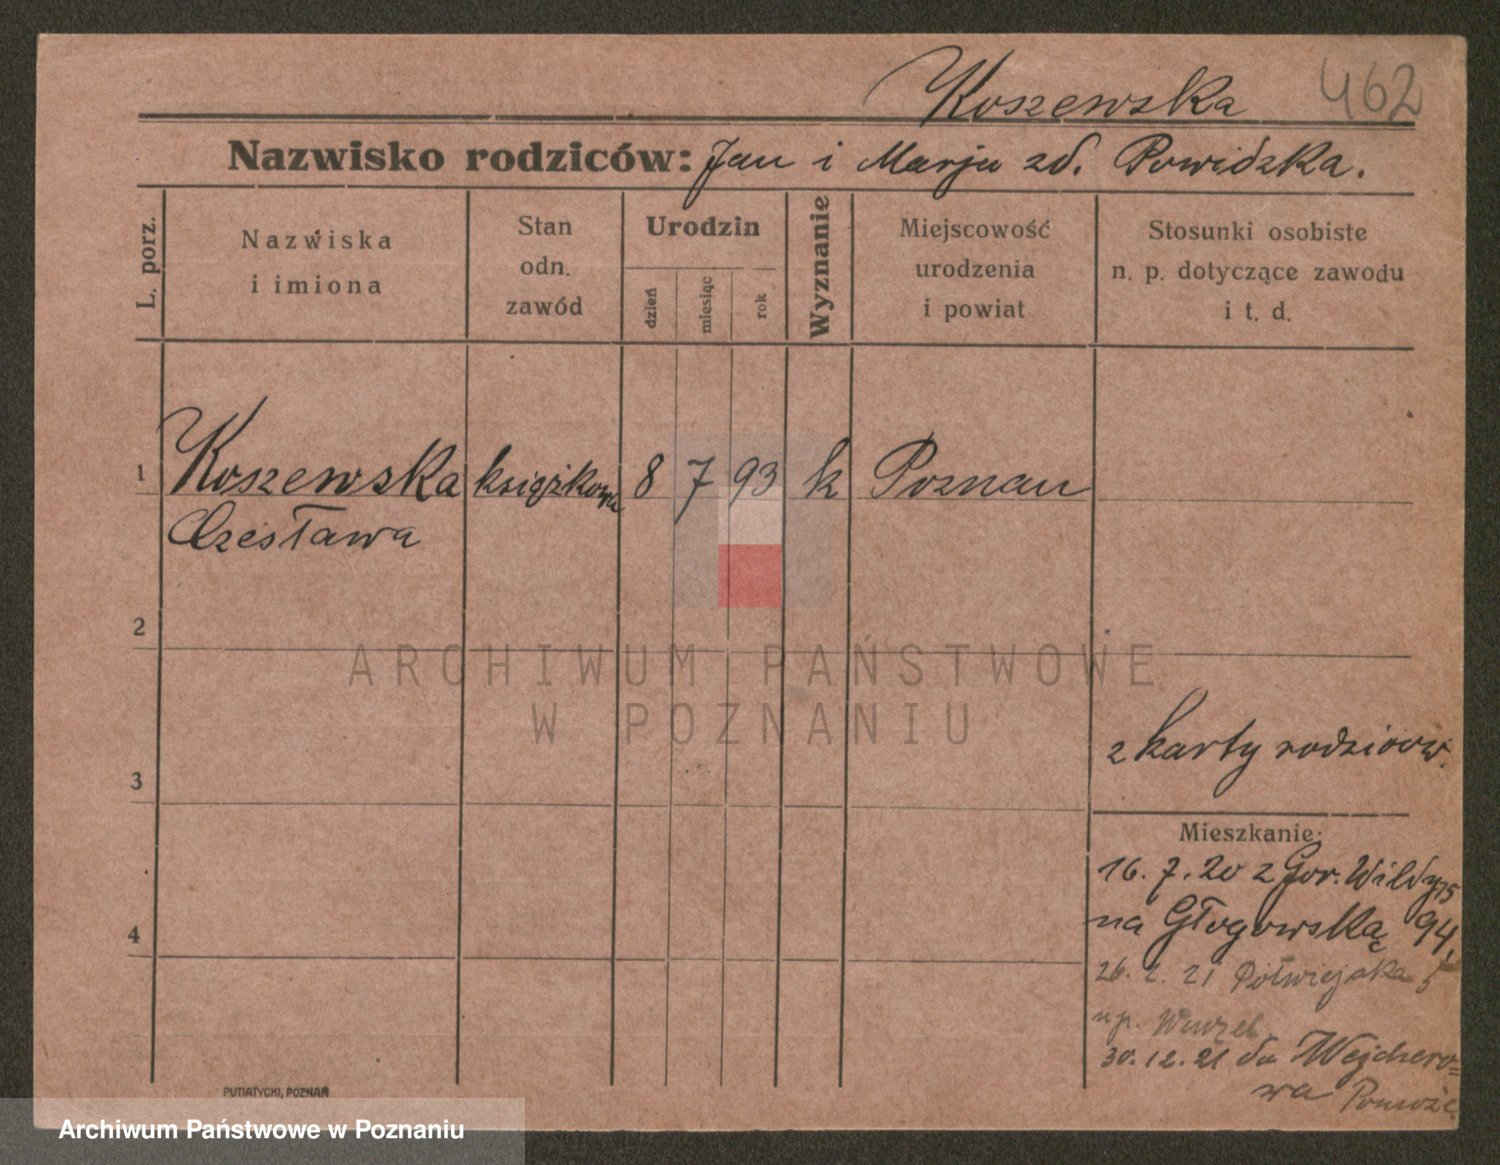 Koszewska 462
Nazwisko rodziców: Jan i Marja zd. Powidzka.
L. porz.
Nazwiska
i imiona
Stan
odn.
zawód
Urodzin
dzień
miesiąc
rok
Wyznanie
Miejscowość
urodzenia
i powiat
Stosunki osobiste
n. p. dotyczące zawodu
i t. d.
1 Koszewska książkowa 8 7 93 k Poznan
Czesława
2
ARCHIWUM PAŃSTWOWE
W POZNANIU
z karty rodziców.
3
Mieszkanie:
16.7.20 z Gór. Wildy 75
na Głogowską 94,
4
26. 2. 21 Półwiejska 5
up. Wurzel
30.12.21 do Wejchero=
wa
PUTIATYCKI, POZNAŃ
Archiwum Państwowe w Poznaniu